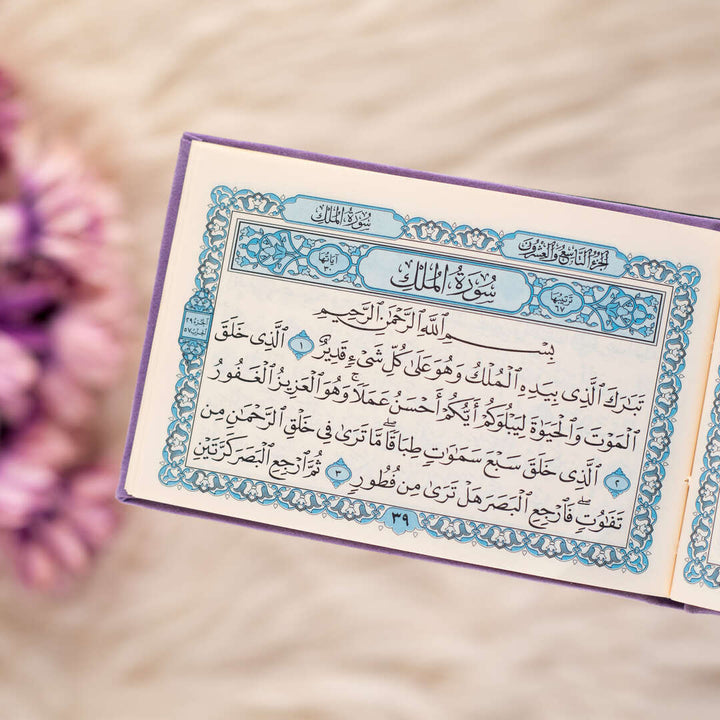 سُورَةُ المُلْكِ
الجُزْءُ التَّاسِعُ وَالعِشْرُونَ
آيَاتُهَا ٣٠
سُورَةُ المُلْكِ
تَرْتِيبُهَا ٦٧
بِسْمِ ٱللَّهِ ٱلرَّحْمَٰنِ ٱلرَّحِيمِ
تَبَٰرَكَ ٱلَّذِى بِيَدِهِ ٱلْمُلْكُ وَهُوَ عَلَىٰ كُلِّ شَىْءٍ قَدِيرٌ ١ ٱلَّذِى خَلَقَ
ٱلْمَوْتَ وَٱلْحَيَوٰةَ لِيَبْلُوَكُمْ أَيُّكُمْ أَحْسَنُ عَمَلًا ۚ وَهُوَ ٱلْعَزِيزُ ٱلْغَفُورُ
٢ ٱلَّذِى خَلَقَ سَبْعَ سَمَٰوَٰتٍ طِبَاقًا ۖ مَّا تَرَىٰ فِى خَلْقِ ٱلرَّحْمَٰنِ مِن
تَفَٰوُتٍ ۖ فَٱرْجِعِ ٱلْبَصَرَ هَلْ تَرَىٰ مِن فُطُورٍ ٣ ثُمَّ ٱرْجِعِ ٱلْبَصَرَ كَرَّتَيْنِ
٣٩